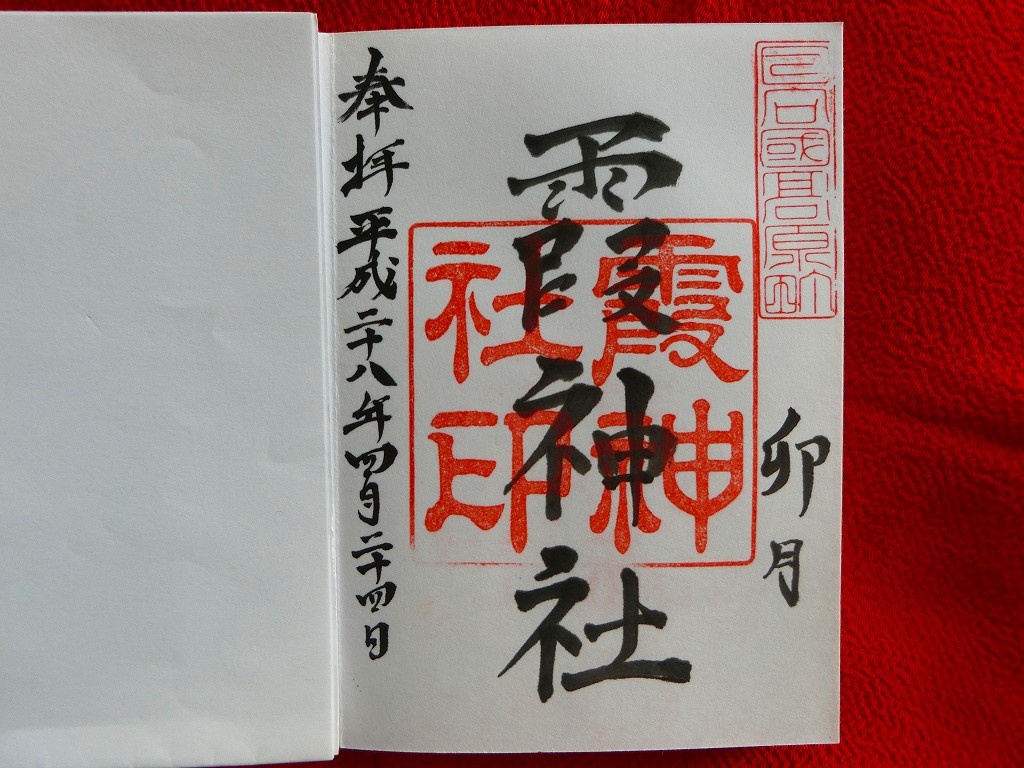 日向國高原
卯月
霞神社
霞神
社印
奉拝平成二十八年四月二十四日